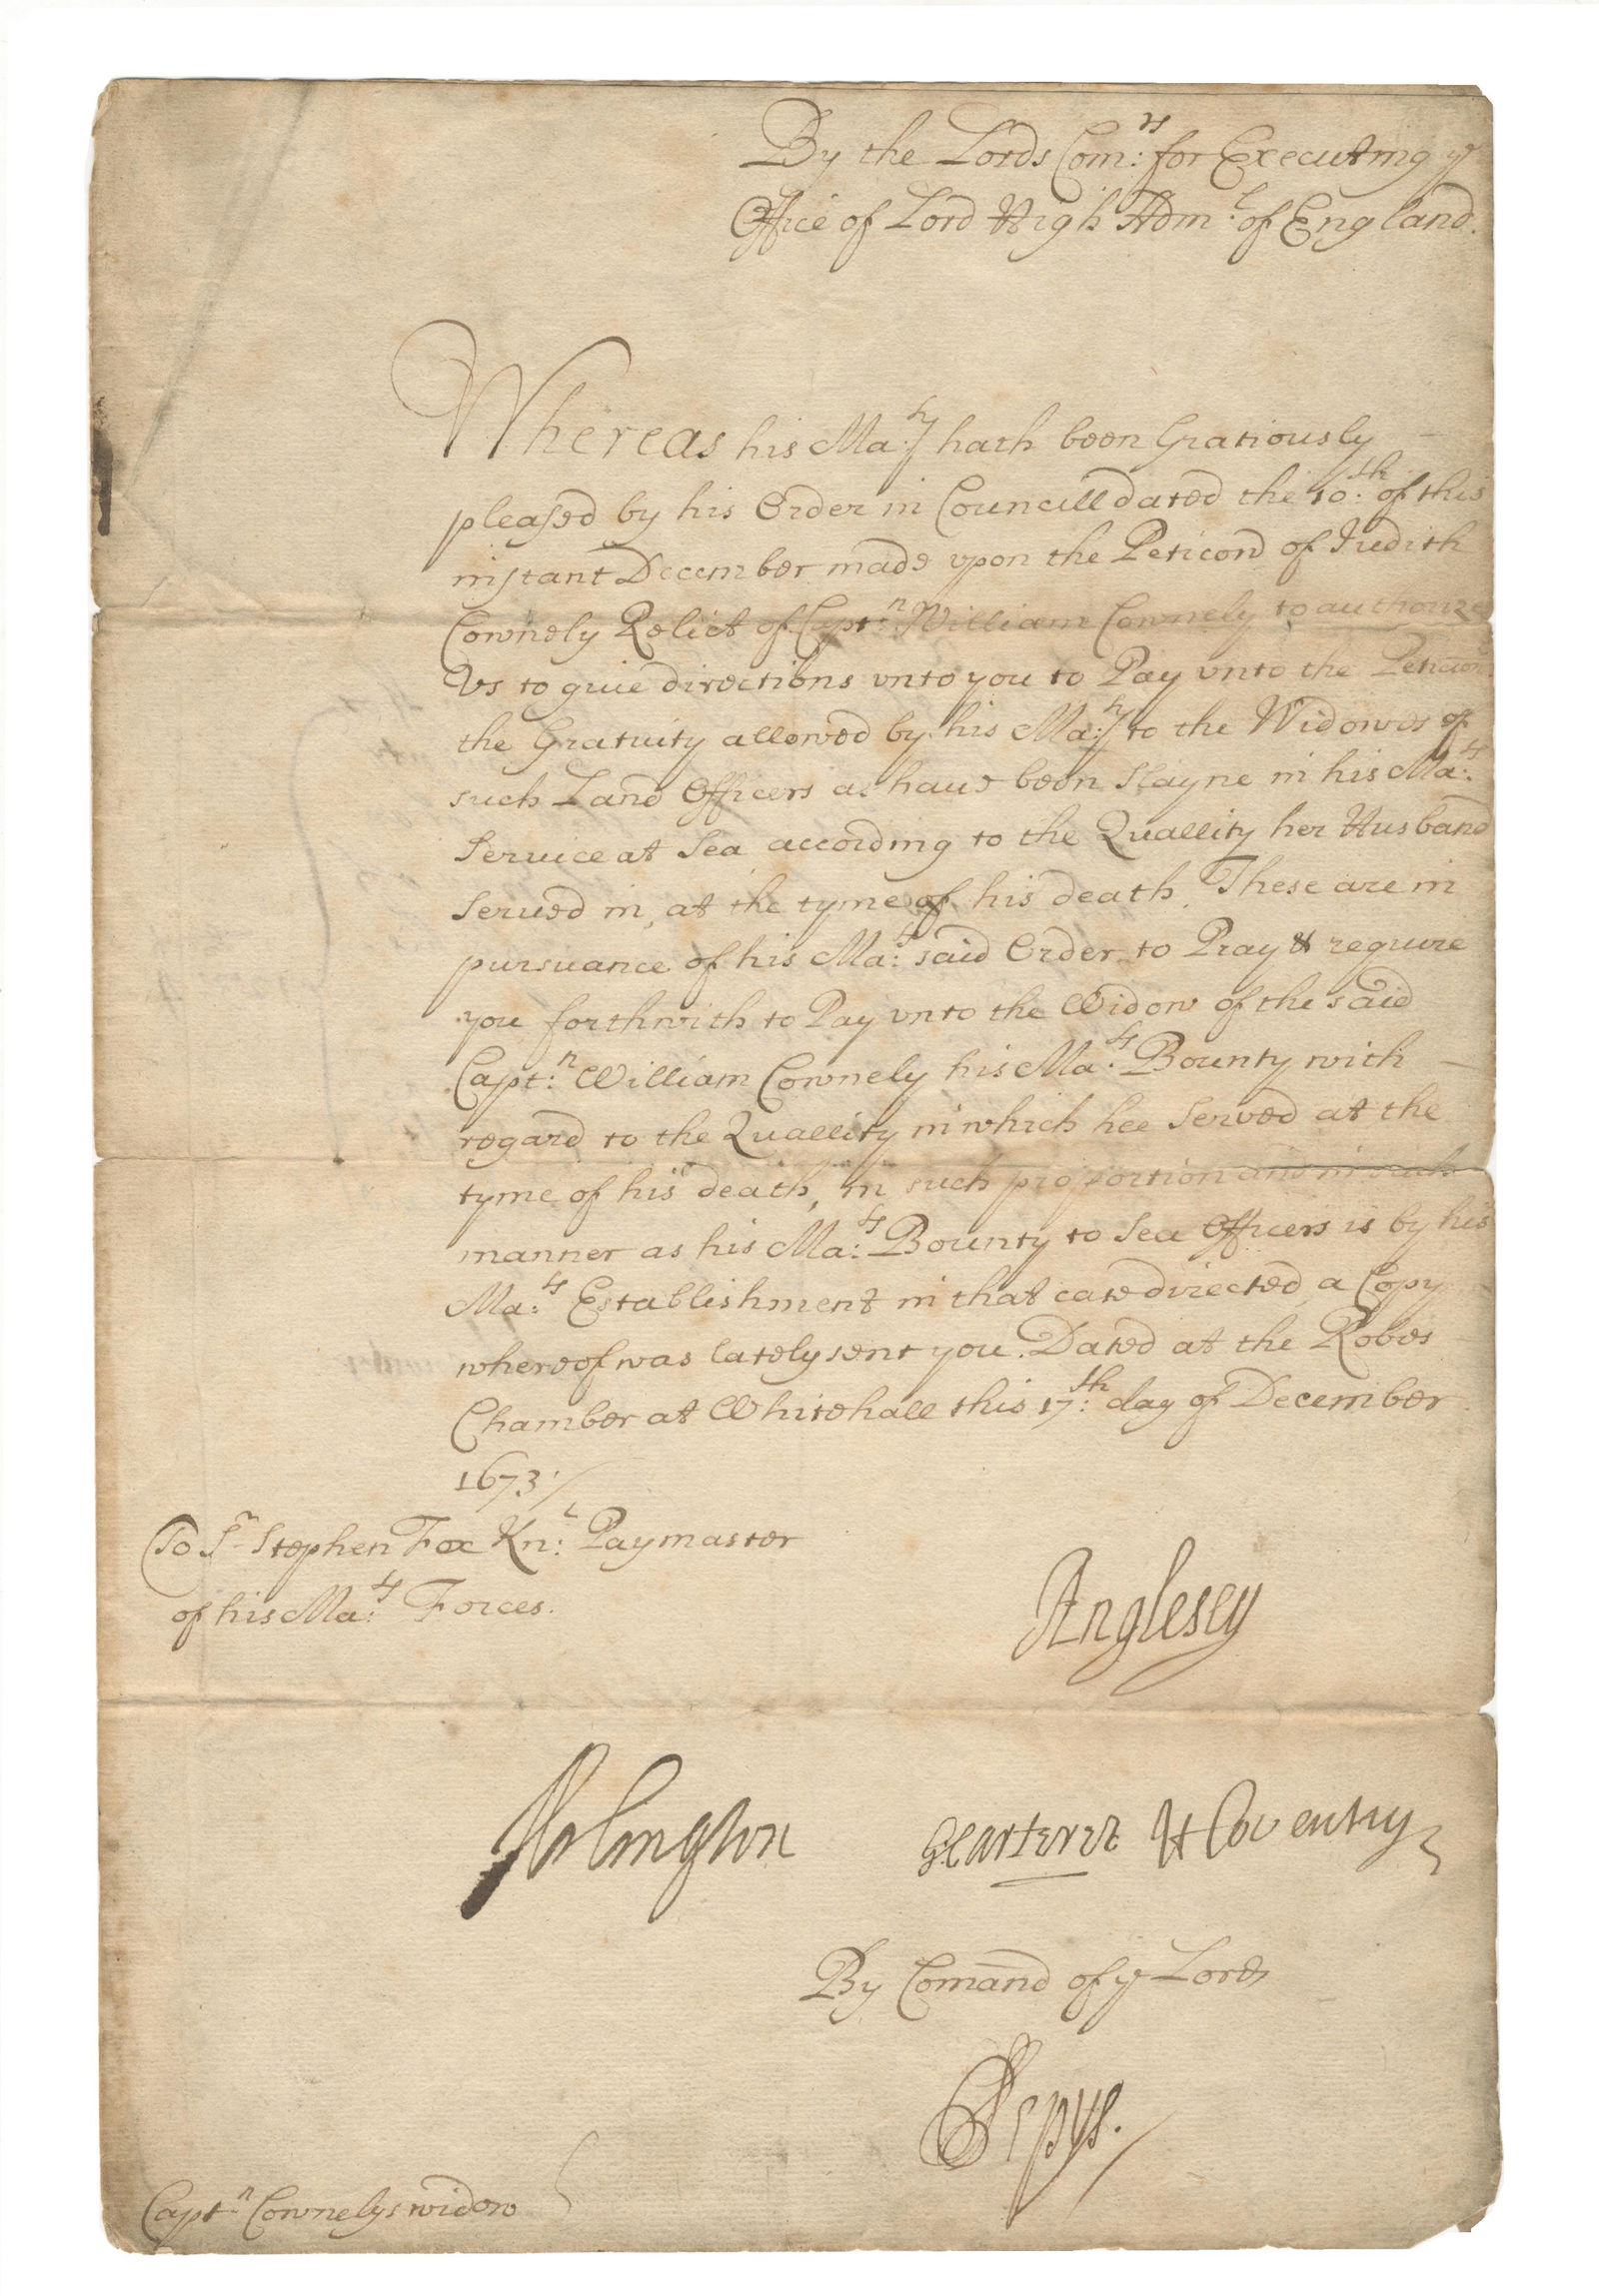 By the Lords Com:rs for Executing ye
Office of Lord High Adm:l of England.
Whereas his Ma:ty hath been Gratiously
pleased by his Order in Councill dated the 10:th of this
instant December made vpon the Peticon of Judith
Cownely Relict of Capt:n William Cownely to authorize
Vs to giue directions vnto you to Pay vnto the Peticon:
the Gratuity allowed by his Ma:ty to the Widowes of
such Land Officers as haue been Slayne in his Ma:ts
Seruice at Sea according to the Quallity her Husband
Serued in, at the tyme of his death, These are in
pursuance of his Ma:ts said Order to Pray & require
you forthwith to Pay vnto the Widow of the said
Capt:n William Cownely his Ma:ts Bounty with
regard to the Quallity in which hee Served at the
tyme of his death, in such proportion and in such
manner as his Ma:ts Bounty to Sea Officers is by his
Ma:ts Establishment in that case directed, a Copy
whereof was lately sent you. Dated at the Robes
Chamber at Whitehall this 17:th day of December
1673:/
To Sr Stephen Fox Kn:t Paymaster
of his Ma:ts Forces.
Anglesey
Arlington GCarteret H Coventry
By Comand of ye Lords
SPepys.
Capt:n Cownelys widow